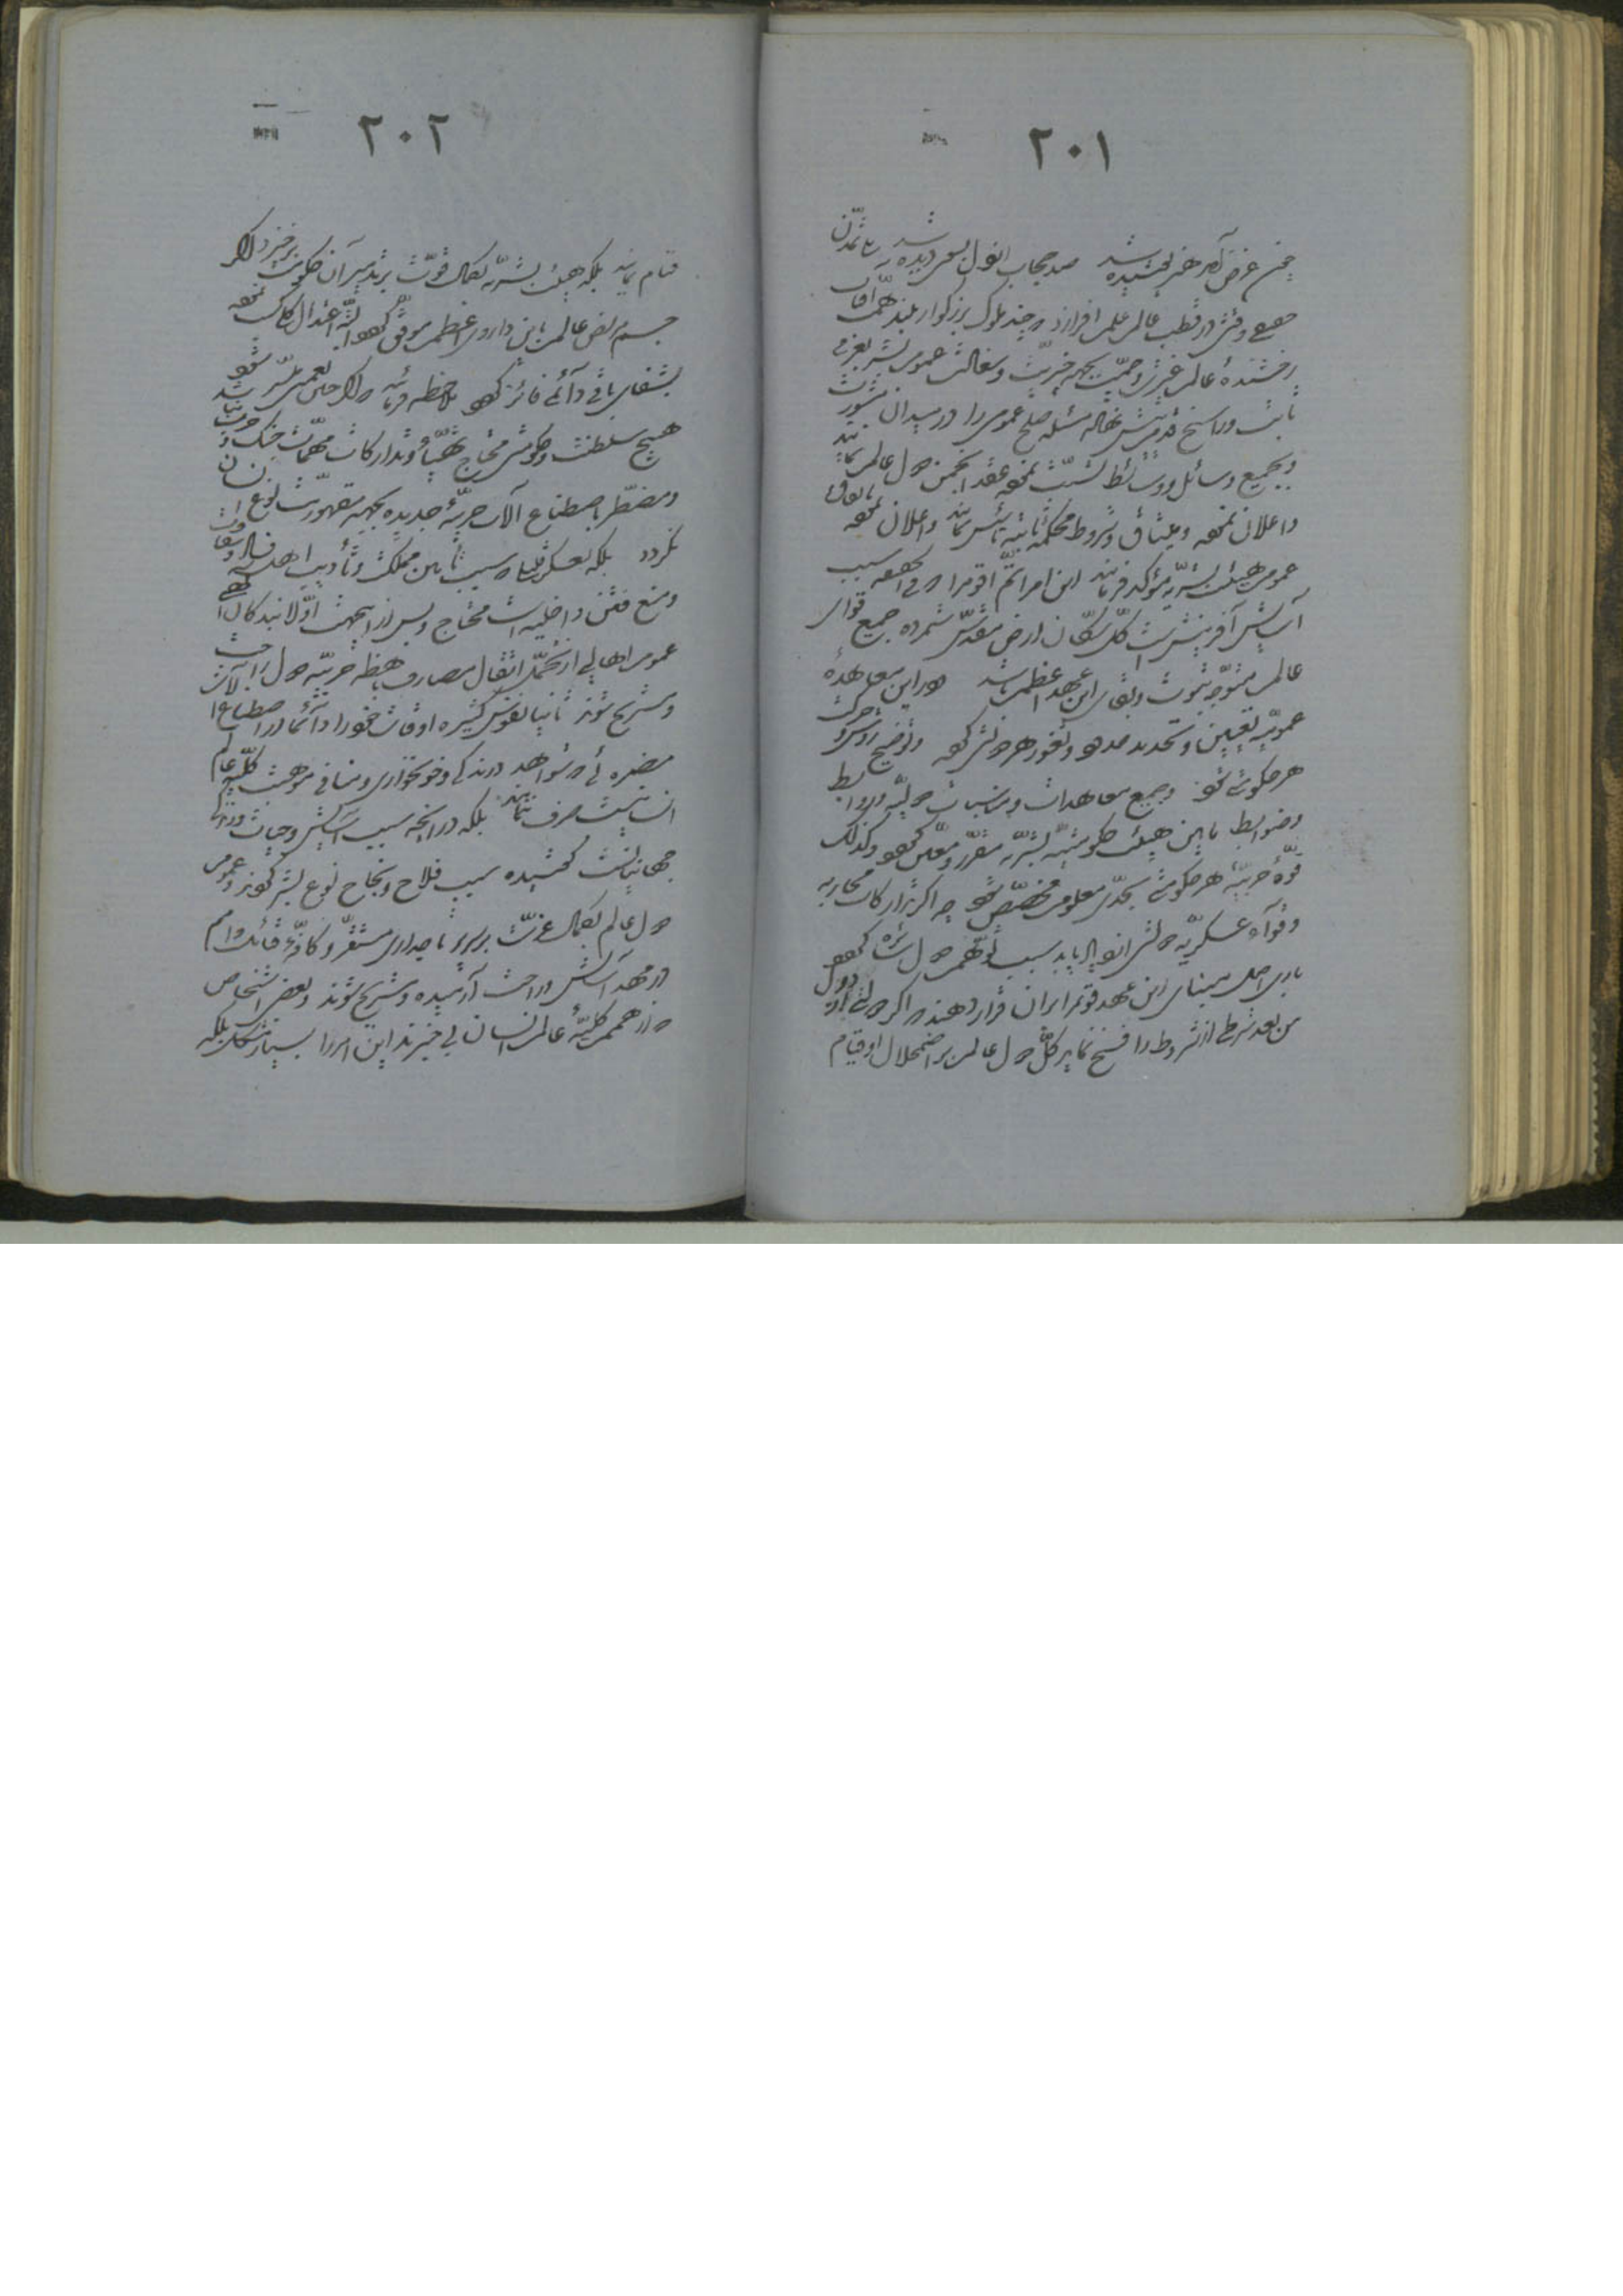 ٢٠١
چون غرض آمد هنر پوشیده شد صد حجاب از دل بسوی دیده شد بلی تمدّن
حقیقی وقتی در قطب عالم علم افرازد که چند ملوک بزرکوار بلند همّت چون آفتاب
رخشندهٔ عالم غیرت و حمیّت بجهة خیریّت و سعادت عموم بشر بعزمی
ثابت و رأی راسخ قدم پیش نهاده مسئلهٔ صلح عمومی را در میدان مشورت
و بجمیع وسائل و وسائط تشبّث نموده عقد انجمن دول عالم نمایند
و اعلان نموده و میثاق و شروط محکمهٔ ثابته تأسیس نمایند و اعلان نموده باتفاق
عموم هیئت بشریّه مؤکد فرمایند این امر اتمّ اقوم را که فی الحقیقه سبب
آسایش آفرینش است کلّ سکّان ارض مقدّس شمرده جمیع قوای
عالم متوجّه ثبوت و بقای این عهد اعظم باشد و در این معاهدهٔ
عمومیّه تعیین و تحدید حدود و ثغور هر دولتی کردد و توضیح روش و حرکت
هر حکومتی شود و جمیع معاهدات و مناسبات دولیّه و روابط
و ضوابط ما بین هیئت حکومتیّهٔ بشریّه مقرّر و معیّن کردد و کذلک
قوّهٔ حربیّهٔ هر حکومتی بحدّی معلوم مخصّص شود چه اکر تدارکات محاربه
و قوای عسکریّهٔ دولتی ازدیاد یابد سبب توهّم دول سائره کردد
باری اصل مبنای این عهد قویم را بر آن قرار دهند که اکر دولتی از دول
من بعد شرطی از شروط را فسخ نماید کلّ دول عالم بر اضمحلال او قیام
٢٠٢
قیام نمایند بلکه هیئت بشریّه بکمال قوّت بر تدمیر آن حکومت برخیزد اکر
جسم مریض عالم باین داروی اعظم موفّق کردد البتّه اعتدال کلّی کسب نموده
بشفای باقی دائمی فائز کردد ملاحظه فرمائید که اکر چنین نعمتی میسّر شود
هیچ سلطنت و حکومتی محتاج تهیّأ و تدارکات مهمّات جنک و حرب نباشد
و مضطرّ باصطناع آلات حربیّهٔ جدیده بجهة مقهوریّت نوع انسان
نکردد بلکه بعسکر قلیلی که سبب تأمین مملکت و تأدیب اهل فساد و شقاوت
و منع فتن داخلیّه است محتاج و بس از این جهت اوّلاً بندکان الهی
عموم اهالی از تحمّل اثقال مصارف باهظهٔ حربیّهٔ دول راحت
و مستریح شوند ثانیاً نفوس کثیره اوقات خود را دائماً در اصطناع آلات
مضرّه که شواهد درندکی و خونخواری و منافی موهبت کلّیّهٔ عالم
انسانیست صرف ننمایند بلکه در آنچه سبب آسایش و حیات و زندکی
جهانیانست کوشیده سبب فلاح و نجاح نوع بشر کردند و عموم
دول عالم بکمال عزّت بر سریر تاجداری مستقرّ و کافّهٔ قبائل و امم
در مهد آسایش و راحت آرمیده و مستریح شوند و بعضی اشخاص
که از همم کلیّهٔ عالم انسان بی خبرند این امر را بسیار مشکل بلکه